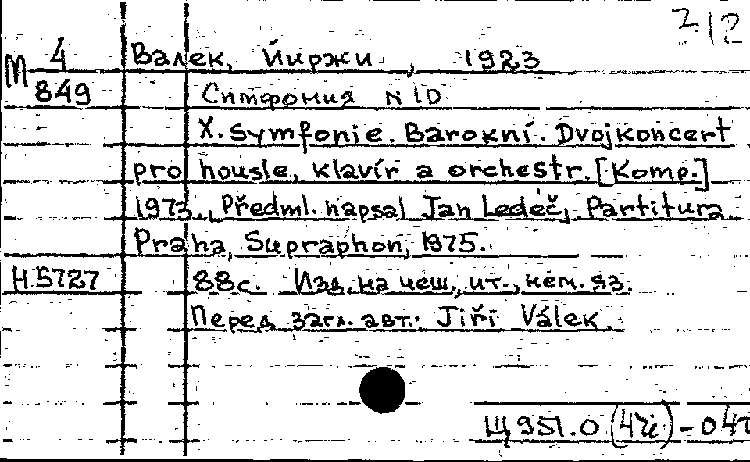 2/2
М 4 Валек, Йиржи, 1923
849 Симфония N 10
X. Symfonie. Barokní. Dvojkoncert
pro housle, klavír a orchestr. [Komp.]
1973., Předml. napsal Jan Ledeč, Partitura
Praha, Supraphon, 1975.
Н.5727 88с. Изд. на чеш., ит., нем. яз.
Перед загл. авт.: Jiří Válek.
Щ 951.0 (4Че) - 04